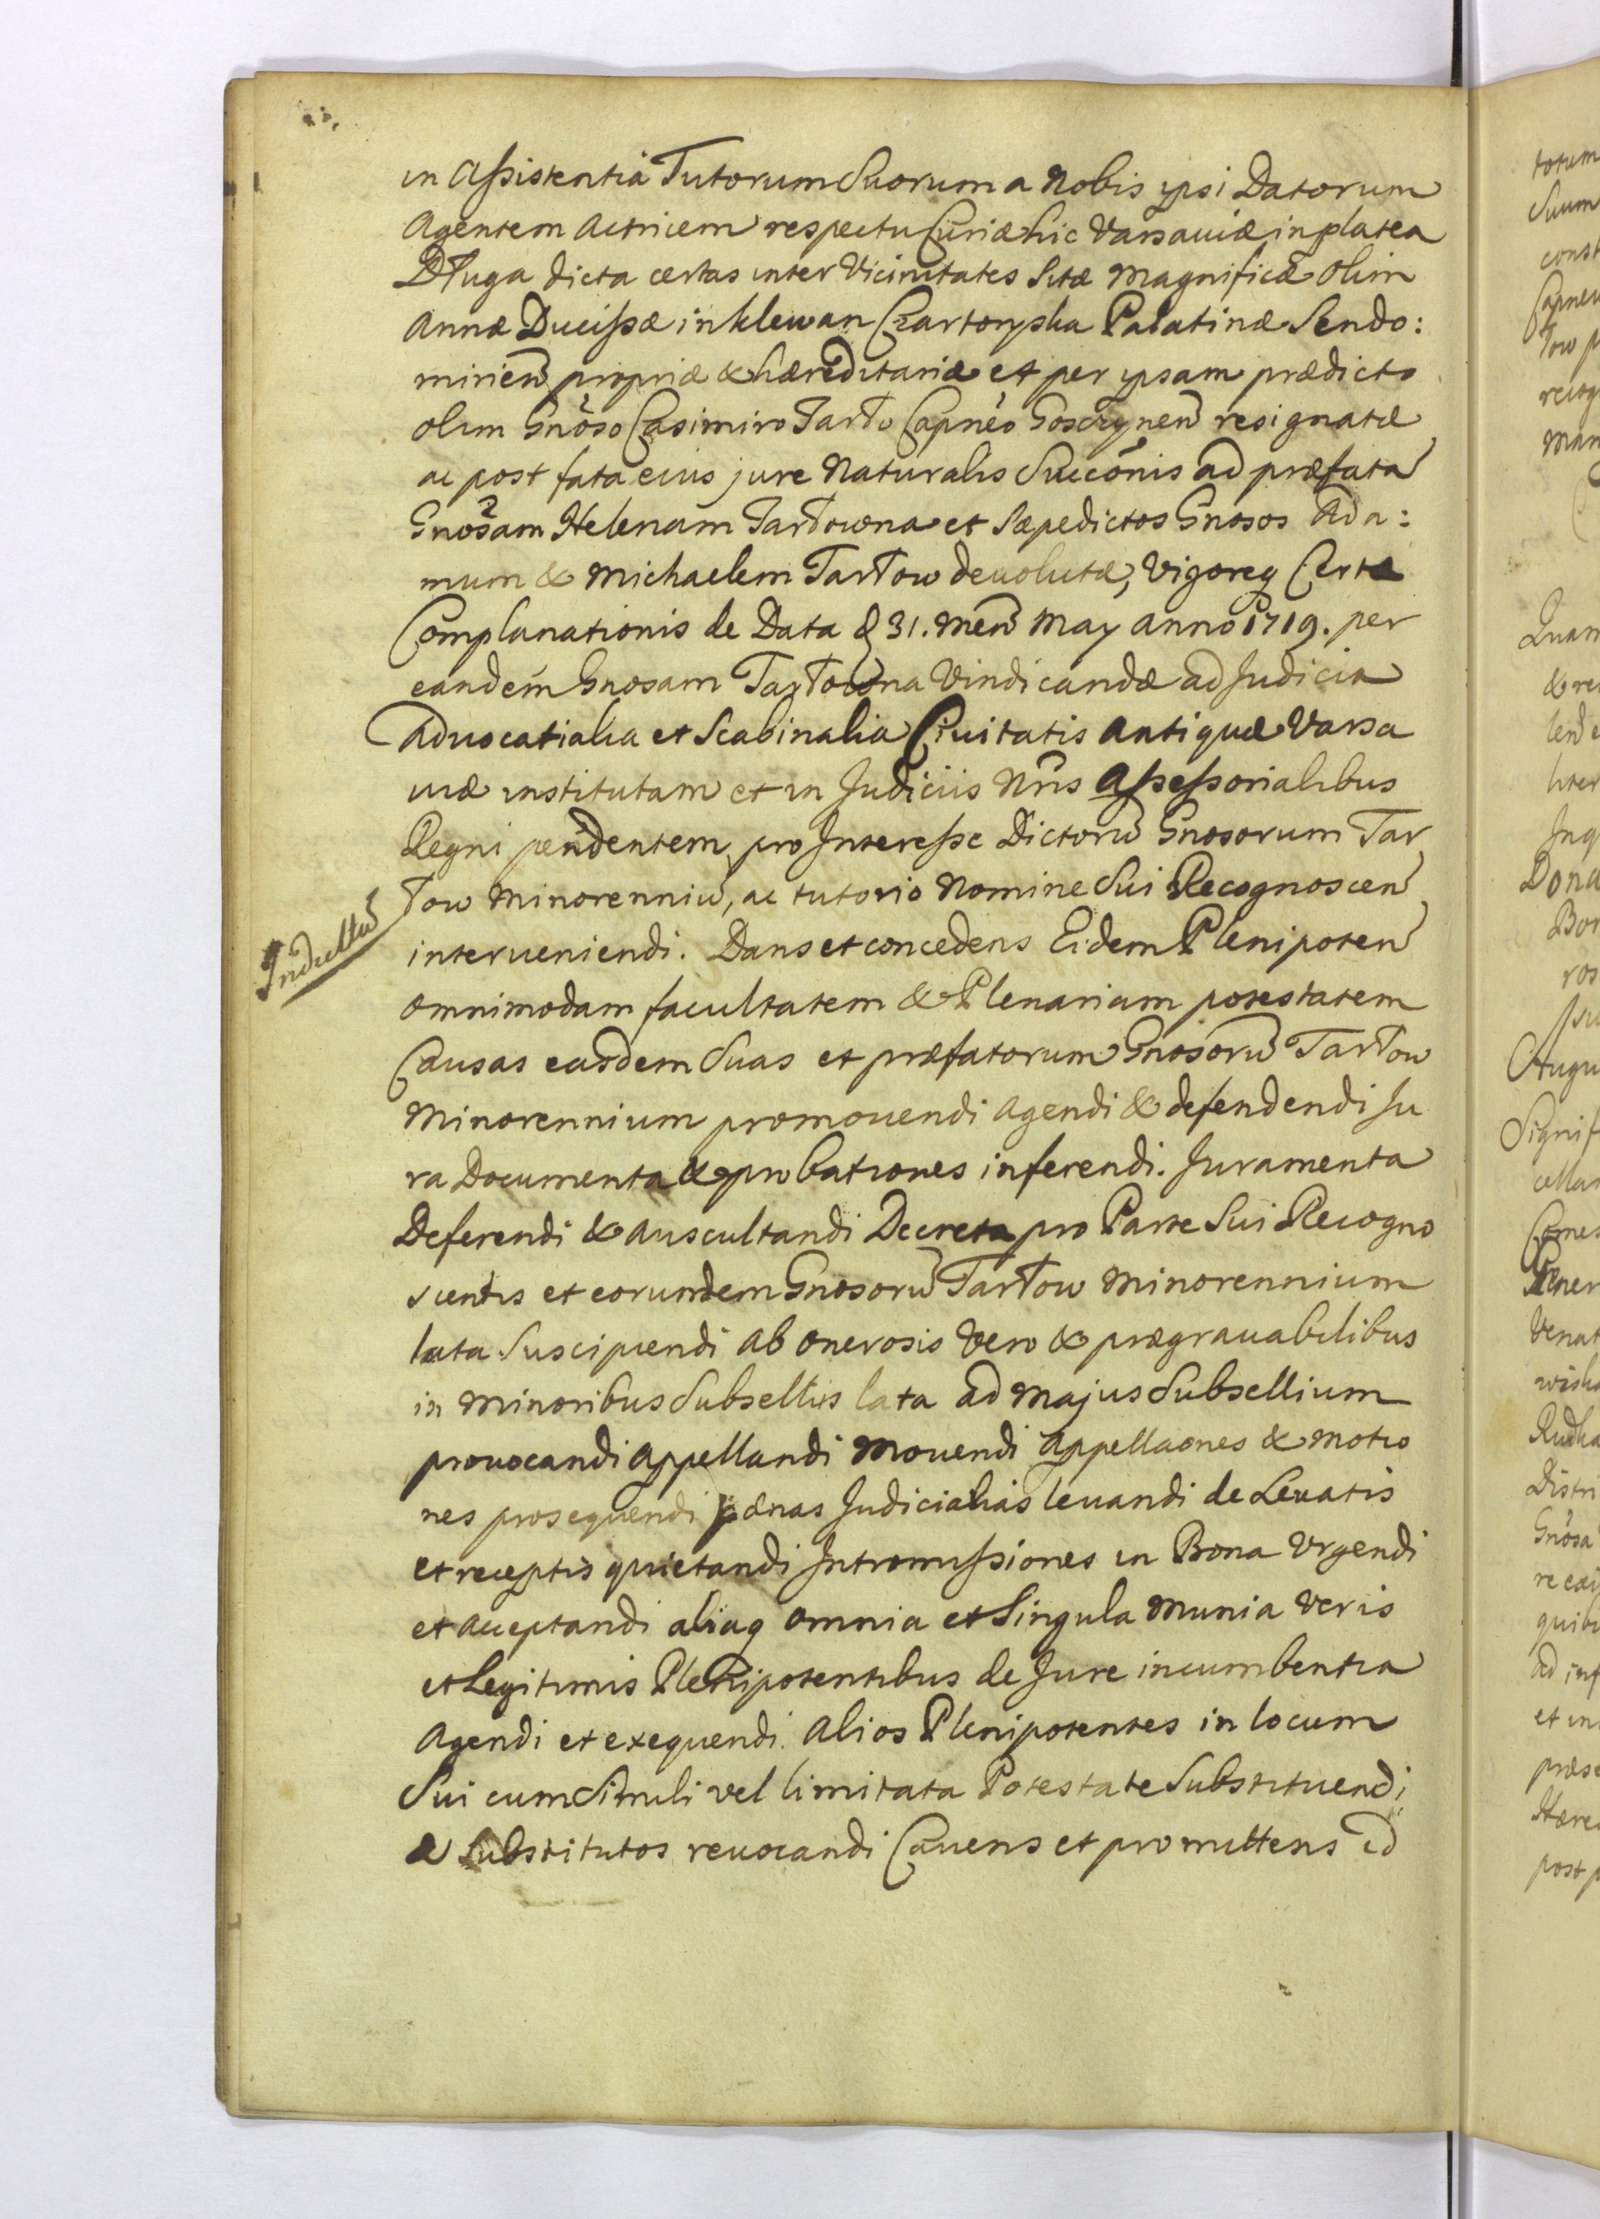 in Assistentia Tutorum Suorum a Nobis ipsi Datorum
Agentem Actricem respectu Curiæ hic Varsaviæ in platea
Długa dicta certas inter Vicinitates Sitæ Magnificæ Olim
Annæ Ducissæ in Klewan Czartoryska Palatinæ Sendo:
mirien propriæ & hæreditariæ et per ipsam prædicto
olim Gnoso Casimiro Tarło Capneo Goszczynen resignatæ
ac post fata eius jure Naturalis Succonis ad præfata
Gnosam Helenam Tarłowna et Sæpedictos Gnosos Ada:
mum & Michaelem Tarłow devolutæ, Vigoreq Certæ
Complanationis de Data D 31. Men May Anno 1719. per
eandem Gnosam Tarłowna Vindicandæ ad Judicia
Advocatialia et Scabinalia Civitatis Antiquæ Varsa
viæ institutam et in Judiciis Nris Assessorialibus
Regni pendentem, pro Interesse Dictoru Gnosorum Tar
łow Minorenniu, ac tutorio Nomine Sui Recognoscen
Inductu
interveniendi. Dans et concedens Eidem Plenipoten
omnimodam facultatem & Plenariam potestatem
Causas easdem Suas et præfatorum Gnosoru Tarłow
Minorennium promovendi agendi & defendendi Ju
ra Documenta & probationes inferendi. Juramenta
Deferendi & auscultandi Decreta pro Parte Sui Recogno
scentis et eorumdem Gnosoru Tarłow Minorennium
lata Suscipiendi ab onerosis Vero & prægravabilibus
in Minoribus Subselliis lata ad Majus Subsellium
provocandi appellandi Movendi appellaones & Motio
nes prosequendi pænas Judicialias levandi de Levatis
et receptis quietandi Intromissiones in Bona Urgendi
et acceptandi aliaq omnia et Singula Munia Veris
et Legitimis Plenipotentibus de Jure incumbentia
Agendi et exequendi. Alios Plenipotentes in locum
Sui cum Simili vel limitata Potestate Substituendi
& Substitutos revocandi Cavens et promittens id